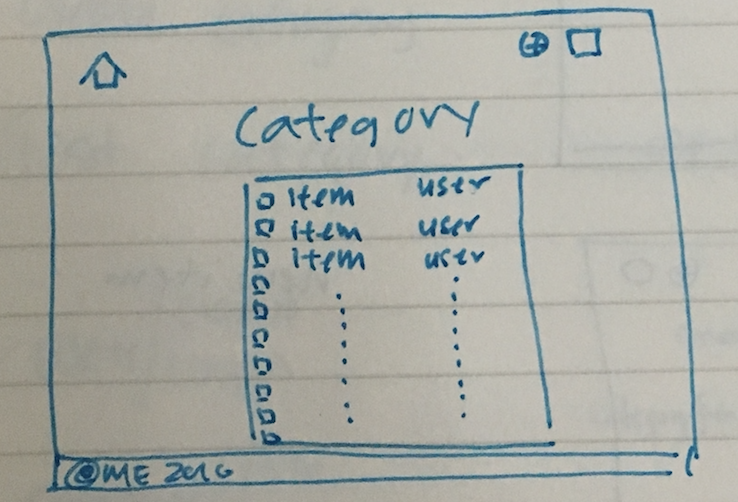 Category
item user
item user
item user
@ME 2016